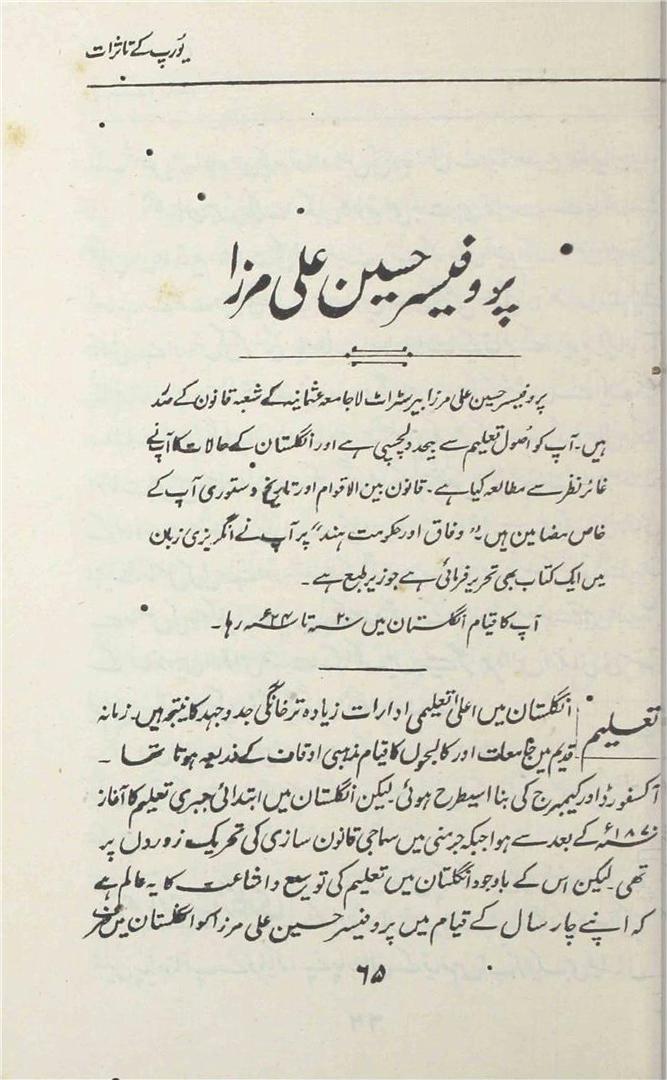 یورپ کے تاثرات
پروفیسر حسین علی مرزا
پروفیسر حسین علی مرزا بیرسٹراٹ لا جامعہ عثمانیہ کے شعبہ قانون کے صدر
ہیں۔ آپ کو اُصول تعلیم سے بیحد دلچسپی ہے اور انگلستان کے حالات کا آپنے
غائر نظر سے مطالعہ کیا ہے۔ قانون بین الاقوام اور تاریخ دستوری آپ کے
خاص مضامین ہیں۔ "وفاق اور حکومت ہند" پر آپ نے انگریزی زبان
میں ایک کتاب بھی تحریر فرمائی ہے جو زیر طبع ہے۔
آپ کا قیام انگلستان میں ۲۰ء تا ۲۴ء رہا۔
تعلیم
انگلستان میں اعلیٰ تعلیمی ادارات زیادہ تر خانگی جدوجہد کا نیتجہ ہیں۔ زمانہ
قدیم میں جامعات اور کالجوں کا قیام مذہبی اوقاف کے ذریعہ ہوتا تھا۔
آکسفورڈ اور کیمبرج کی بنا اسیطرح ہوئی۔ لیکن انگلستان میں ابتدائی جبری تعلیم کا آغاز
۱۸۷۰ء کے بعد سے ہوا جبکہ جرمنی میں سماجی قانون سازی کی تحریک زوردل پر
تھی۔ لیکن اس کے باوجود انگلستان میں تعلیم کی توسیع و اشاعت کا یہ عالم ہے
کہ اپنے چار سال کے قیام میں پروفیسر حسین علی مرزا کو انگلستان میں صرف
۶۵